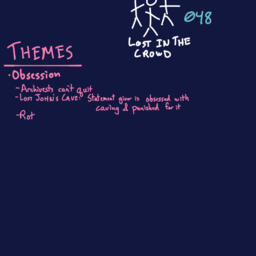 048
LOST IN THE
CROWD
THEMES
• Obsession
- Archivists can't quit
- Lost John's Cave: Statement giver is obsessed with
caving & punished for it
- Rot